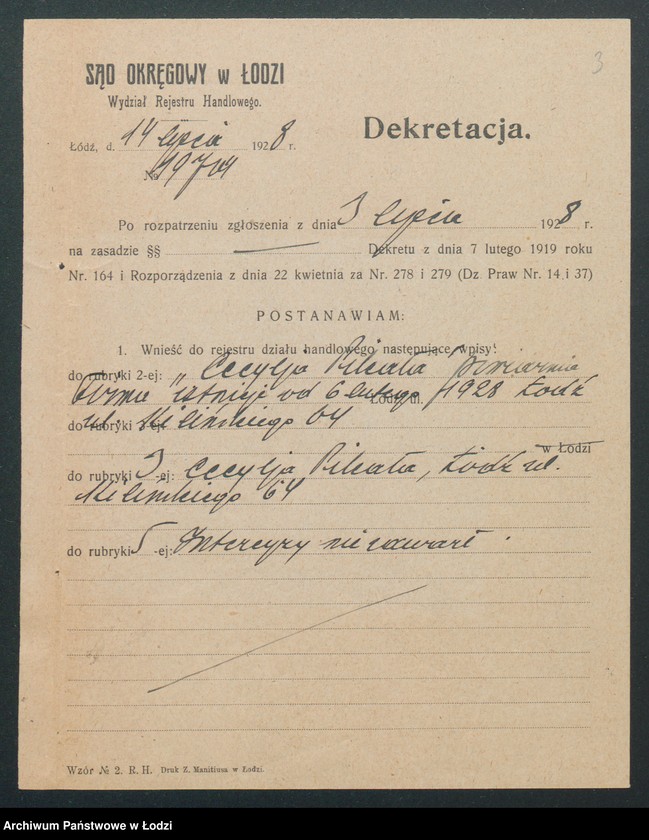 3
SĄD OKRĘGOWY w ŁODZI
Wydział Rejestru Handlowego.
Dekretacja.
Łódź, d. 14 lipca 1928 r.
No 19704
Po rozpatrzeniu zgłoszenia z dnia 3 lipca 1928 r.
na zasadzie §§ — Dekretu z dnia 7 lutego 1919 roku
Nr. 164 i Rozporządzenia z dnia 22 kwietnia za Nr. 278 i 279 (Dz. Praw Nr. 14 i 37)
POSTANAWIAM:
1. Wnieść do rejestru działu handlowego następujące wpisy:
do rubryki 2-ej: „Cecylja Pilcata Piwiarnia
Firma istnieje od 6 lutego 1928 Łódź
Łódź ul.
do rubryki -ej: ul. Kilińskiego 64
w Łodzi
do rubryki 3 -ej: Cecylja Pilcata, Łódź ul.
Kilińskiego 64
do rubryki 5 -ej: Intercyzy nie zawarł.
Wzór № 2. R. H. Druk Z. Manitiusa w Łodzi.
Archiwum Państwowe w Łodzi